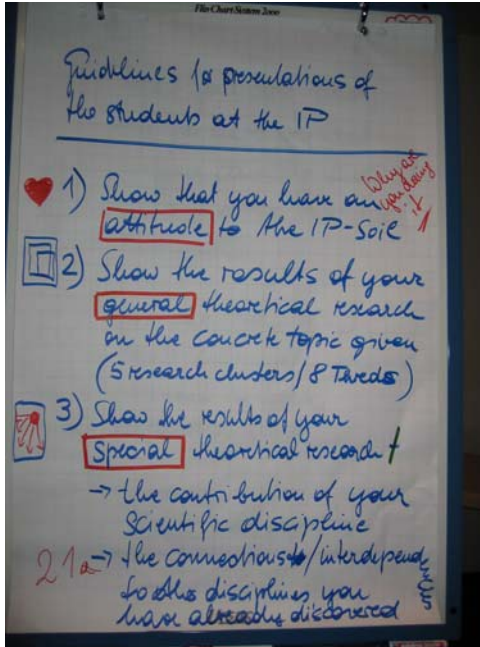 Flip Chart System 2000
Guidelines for presentations of
the students at the IP
1) Show that you have an
attitude to the IP-Soil
Why are
you doing
it
2) Show the results of your
general theoretical research
on the concrete topic given
(5 research clusters/8
3) Show the results of your
special theoretical research
→ the contribution of your
scientific discipline
21a → the connections /interdependencies
to other disciplines you
have already discovered